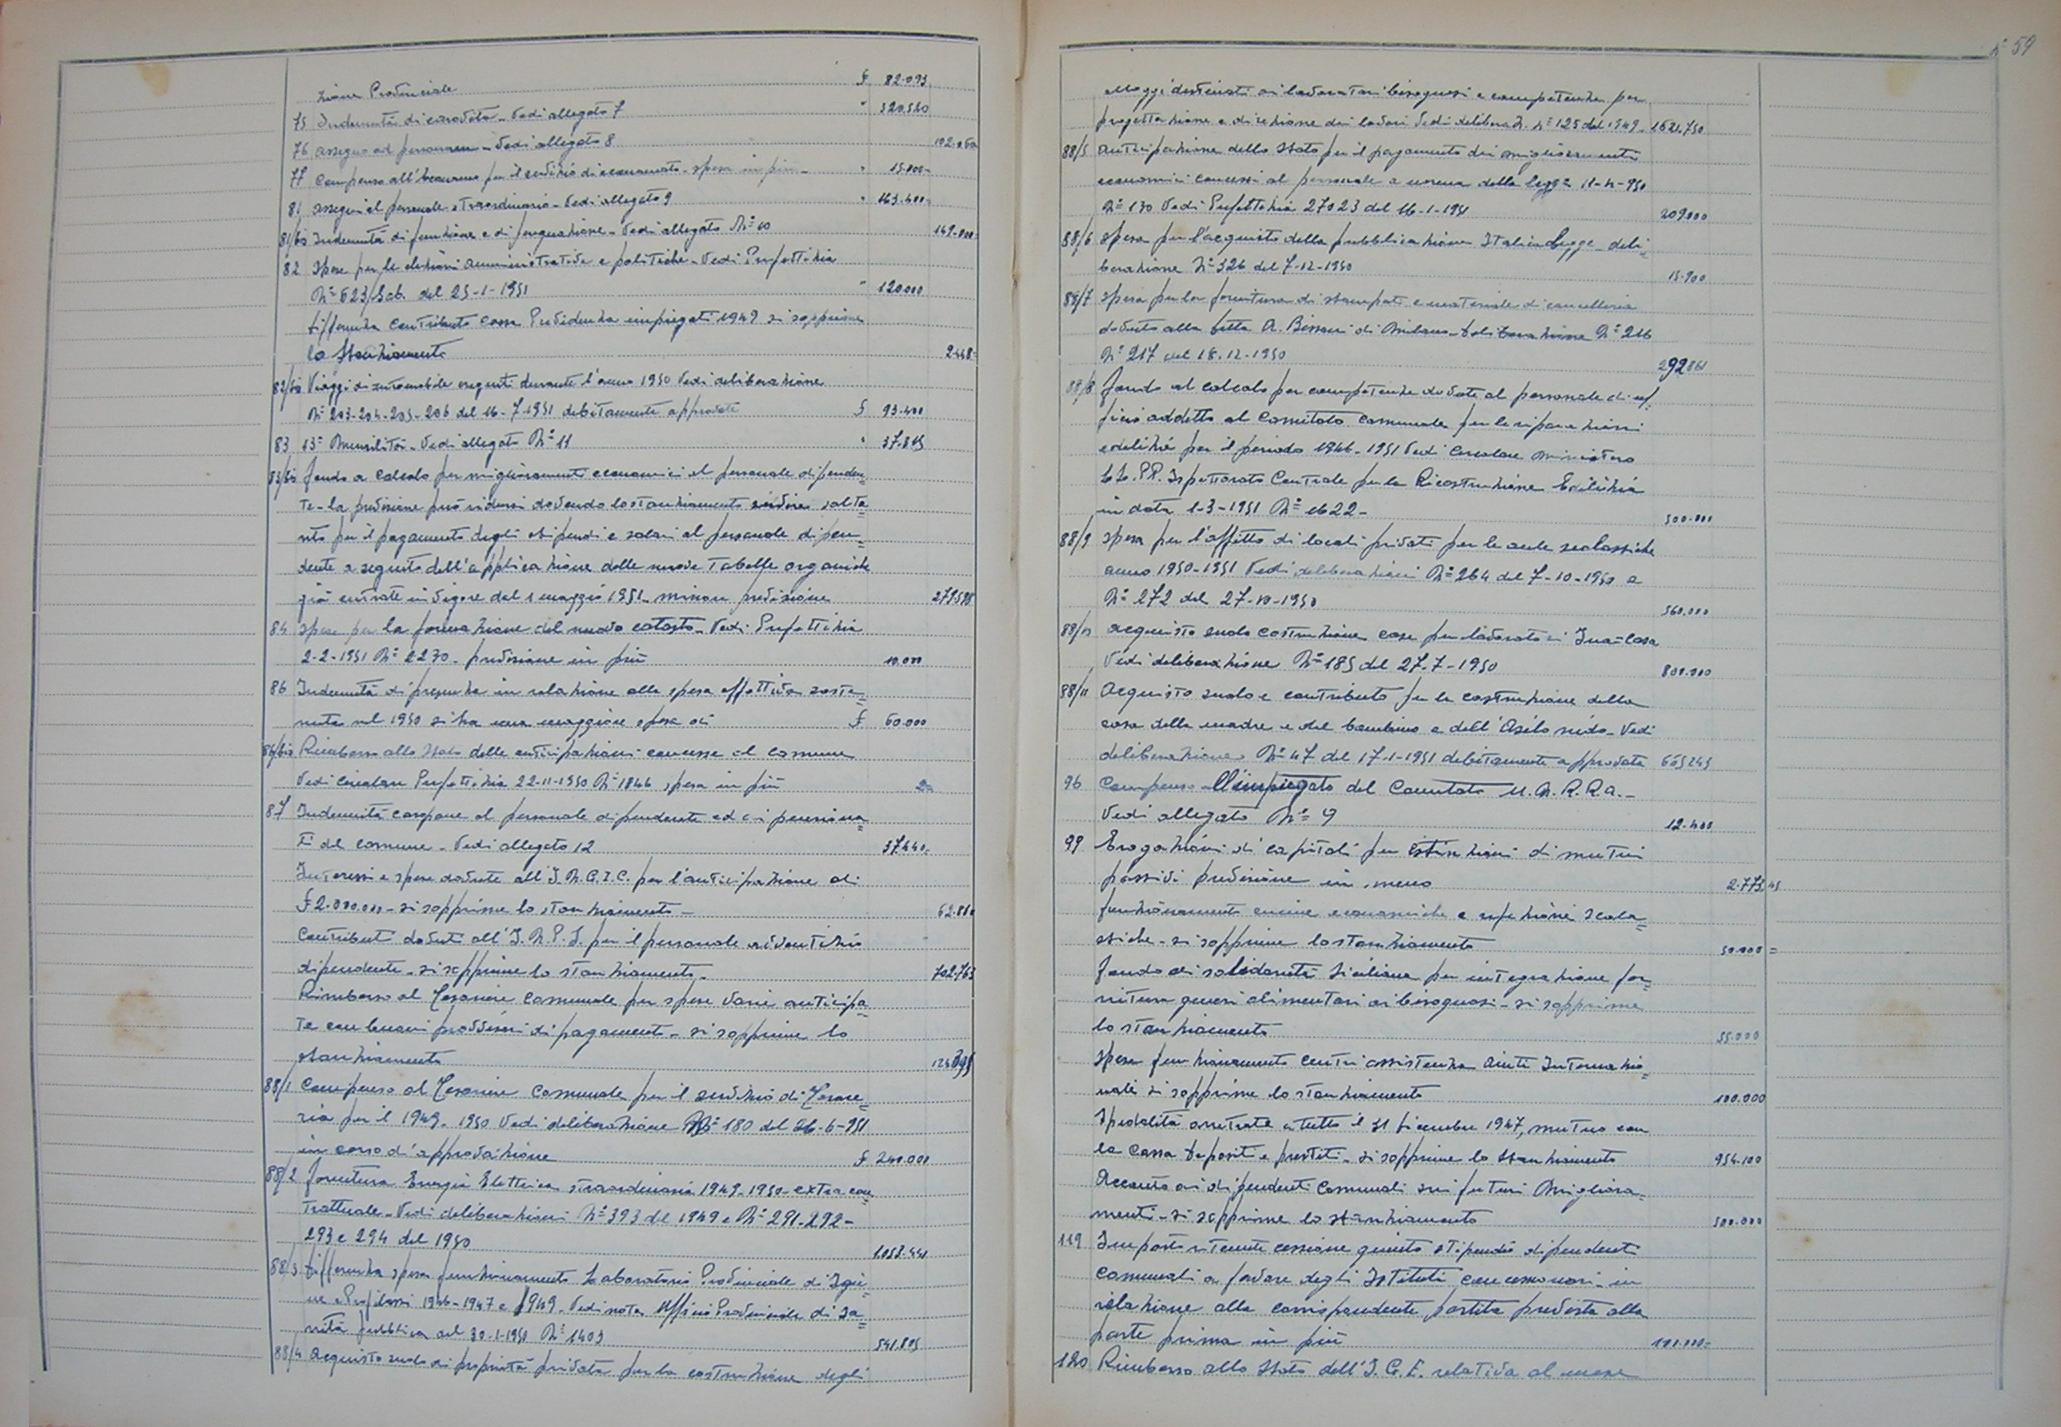 zione Provinciale £ 82.093
75 Indennità di carovita - Vedi allegato 7 " 320.540
76 assegno ad personam - Vedi allegato 8 102.060
77 Compenso all'Economo per il servizio di economato - spesa in più - " 15.000-
81 assegni al personale straordinario - Vedi allegato 9 " 163.400-
81/bis Indennità di funzione e di - Vedi allegato N° 10 149.000-
82 Spese per le elezioni amministrative e politiche - Vedi Prefettizia
N° 623/Gab. del 25-1-1951 " 120.000
Differenza contributo Cassa Previdenza impiegati 1949 si sopprime
lo stanziamento 2.448-
82/bis Viaggi di automobile eseguiti durante l'anno 1950 Vedi deliberazione
N° 203-204-205-206 del 16-7-1951 debitamente approvate £ 93.400
83 13ª Mensilità - Vedi allegato N° 11 " 37.845
83/bis fondo a calcolo per miglioramenti economici al personale dipenden=
te - la previsione può ridursi dovendo lo stanziamento servire solta=
nto per il pagamento degli stipendi e salari al personale dipen=
dente a seguito dell'applicazione delle nuove Tabelle organiche
già entrate in vigore dal 1 maggio 1951 - minore previsione
84 Spese per la formazione del nuovo catasto - Vedi Prefettizia
2-2-1951 N° 2270 - previsione in più 10.000
86 Indennità di presenza in relazione alla spesa effettiva soste=
nuta nel 1950 si ha una maggiore spesa di £ 60.000
86/bis Rimborso allo Stato delle anticipazioni concesse al comune
Vedi Circolare Prefettizia 22-11-1950 N° 1846 spesa in più
87 Indennità caropane al personale dipendente ed ai pensiona=
ti del comune - Vedi allegato 12 37.440-
Interessi e spese dovute all'I.N.G.I.C. per l'anticipazione di
£ 2.000.000 - si sopprime lo stanziamento -
Contributi dovuti all'I.N.P.S. per il personale avventizio
dipendente - si sopprime lo stanziamento - 702.763
Rimborso al Tesoriere Comunale per spese varie anticipa=
te con buoni provvisori di pagamento - si sopprime lo
stanziamento
88/1 Compenso al Tesoriere Comunale per il servizio di Tesore=
ria per il 1949-1950 Vedi deliberazione N° 180 del 26-6-951
in corso d'approvazione £ 240.000
88/2 fornitura Energia Elettrica straordinaria 1949-1950 - extra con=
trattuale - Vedi deliberazioni N° 393 del 1949 e N° 291-292-
293 e 294 del 1950 1.053.441
88/3 Differenza spesa funzionamento Laboratorio Provinciale di Igie=
ne e Profilassi 1946-1947 e 1949 - Vedi nota Ufficio Provinciale di Sa=
nità pubblica del 30-1-1950 N° 1403 541.805
88/4 acquisto suolo di proprietà privata per la costruzione degli
N° 59
alloggi destinati ai lavoratori bisognosi e competenze per
progettazione e direzione dei lavori Vedi delibera N° 125 del 1949 - 1.621.750
88/5 anticipazione dello Stato per il pagamento dei miglioramenti
economici concessi al personale a norma della legge 11-4-950
N° 130 Vedi Prefettizia 27023 del 16-1-1951 209.000
88/6 spesa per l'acquisto della pubblicazione Italia Legge - deli=
berazione N° 326 del 7-12-1950 15.900
88/7 spesa per la fornitura di stampati e materiale di cancelleria
dovuto alla Ditta A. di Milano - deliberazione N° 216
N° 217 del 18-12-1950 292.861
88/8 fondo al calcolo per competenze dovute al personale di uf=
ficio addetto al Comitato comunale per le riparazioni
edilizie per il periodo 1946-1951 Vedi Circolare Ministero
LL.PP. Ispettorato Centrale per la Ricostruzione Edilizia
in data 1-3-1951 N° 1622 - 500.000
88/9 spesa per l'affitto di locali privati per le aule scolastiche
anno 1950-1951 Vedi deliberazioni N° 264 del 7-10-1950 e
N° 272 del 27-10-1950 560.000
88/10 acquisto suolo costruzione case per lavoratori Ina-Casa
Vedi deliberazione N° 185 del 27-7-1950 800.000
88/11 Acquisto suolo e contributo per la costruzione della
casa della madre e del bambino e dell'Asilo nido - Vedi
deliberazione N° 47 del 17-1-1951 debitamente approvata 665245
96 Compenso all'impiegato del Comitato U.N.R.R.A. -
Vedi allegato N° 9 12.400
99 Erogazioni di capitali per estinzioni di mutui
passivi previsione in meno
funzionamento cucine economiche e refezioni scola=
stiche - si sopprime lo stanziamento 50.000=
fondo di solidarietà Siciliana per integrazione for=
nitura generi alimentari ai bisognosi - si sopprime
lo stanziamento 55.000
Spesa funzionamento centri assistenza aiuti Internazio=
nali si sopprime lo stanziamento 100.000
Spedalità arretrate a tutto il 31 Dicembre 1947, mutuo con
la Cassa Depositi e prestiti - si sopprime lo stanziamento 954.100
Acconto ai dipendenti comunali sui futuri Migliora=
menti - si sopprime lo stanziamento 500.000
119 Importi ritenute cessione quinto stipendio dipendenti
comunali a favore degli Istituti concessionari in
relazione alla corrispondente partita prevista alla
parte prima in più 100.000-
120 Rimborso allo Stato dell'I.G.E. relativa al mese